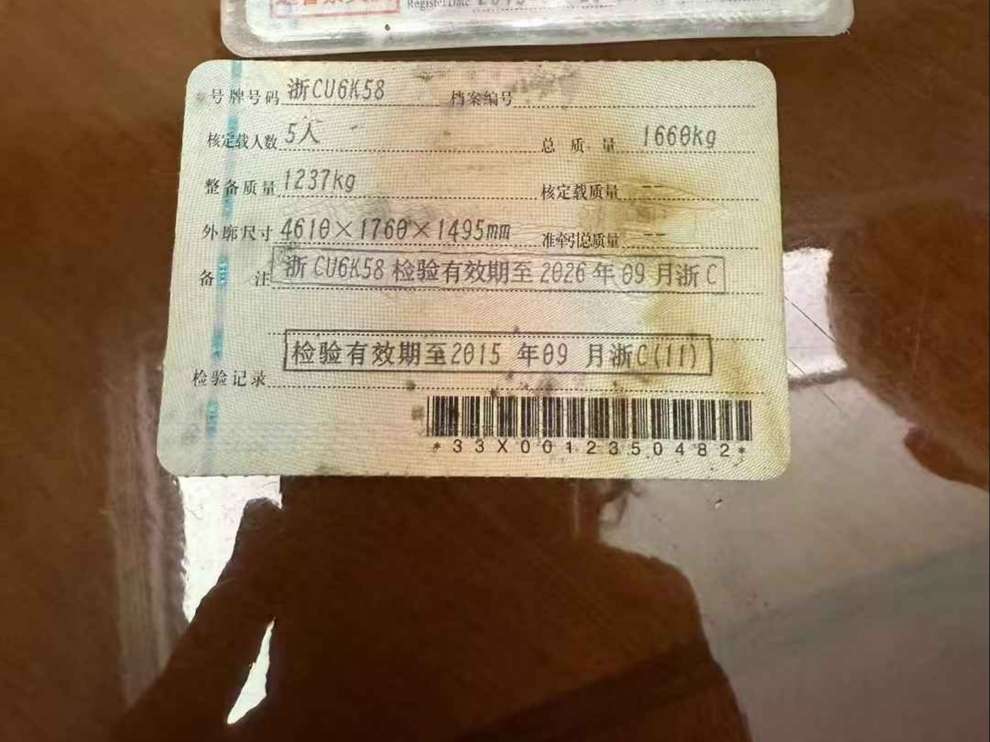 Register Date
号牌号码 浙CU6K58 档案编号
核定载人数 5人 总质量 1660kg
整备质量 1237kg 核定载质量 --
外廓尺寸 4610×1760×1495mm 准牵引总质量 --
备注 浙CU6K58 检验有效期至2026年09月浙C
检验有效期至2015 年09 月浙C(11)
检验记录
*33X0012350482*